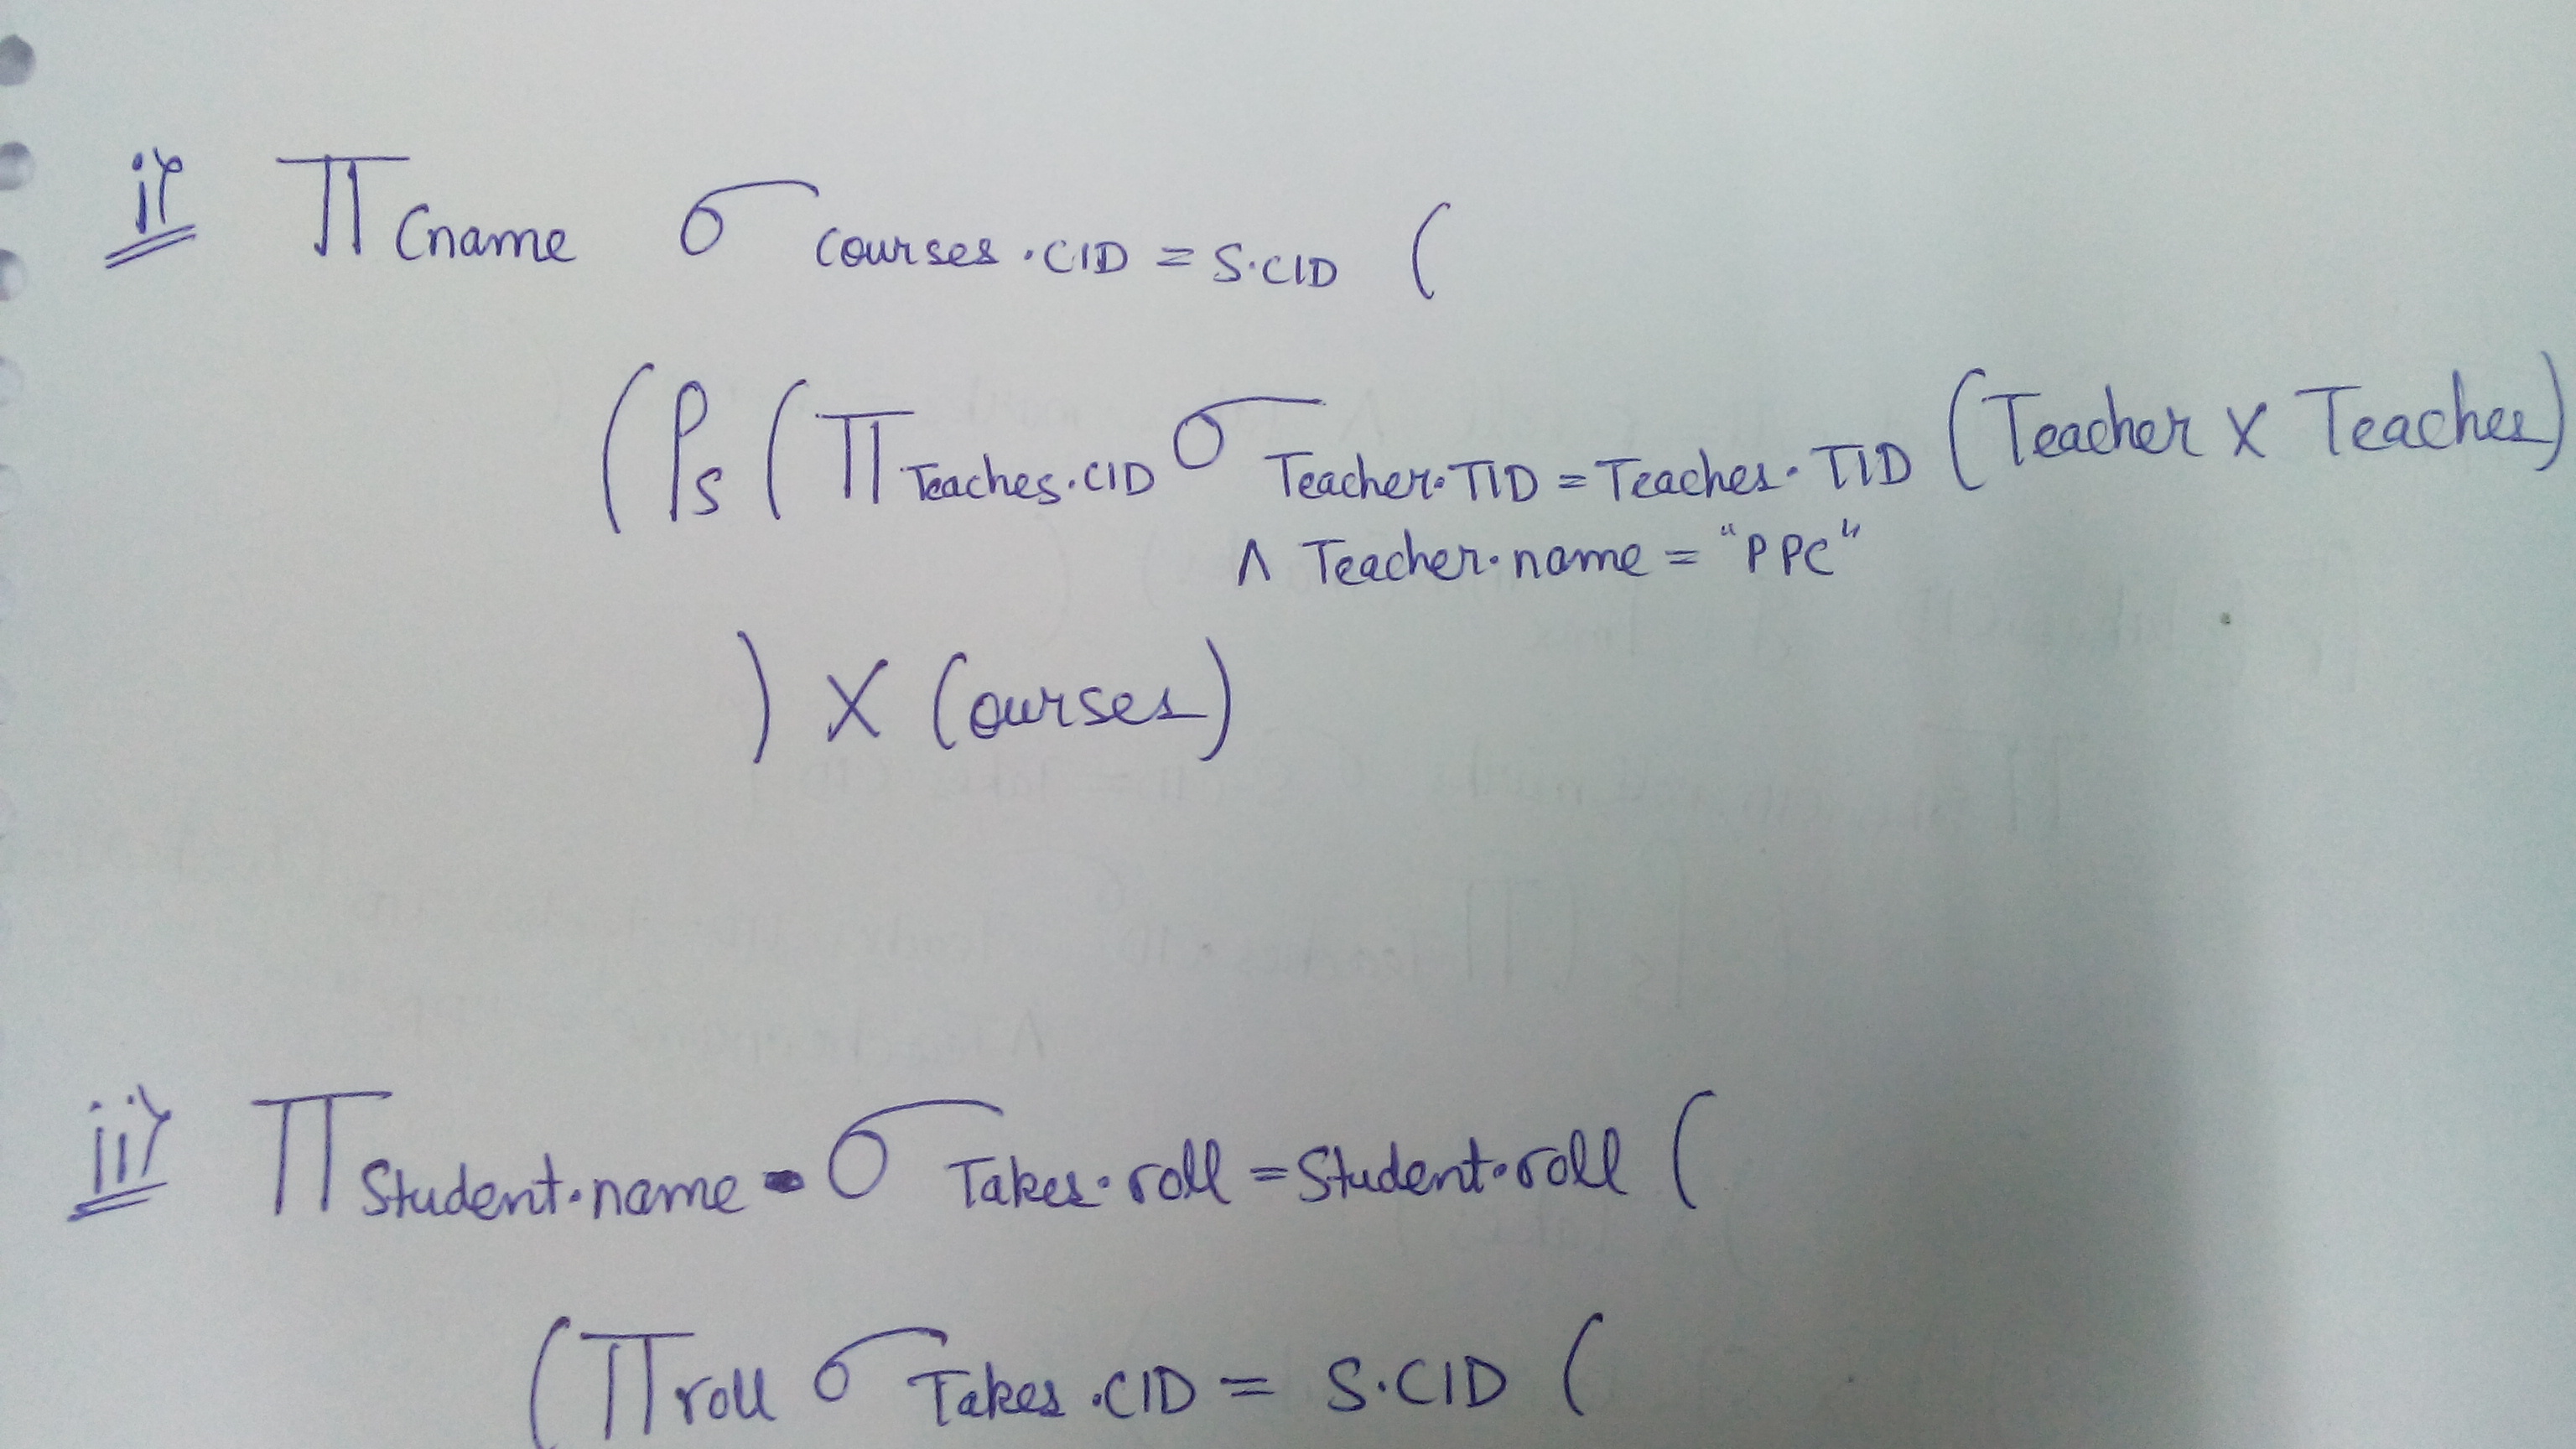 i) Π Cname σ courses.CID = S.CID (
(ρs (Π Teaches.CID σ Teacher.TID = Teaches.TID (Teacher X Teaches)
∧ Teacher.name = "PPC"
) X Courses)
ii) Π Student.name σ Takes.roll = Student.roll (
(Π roll σ Takes.CID = S.CID (